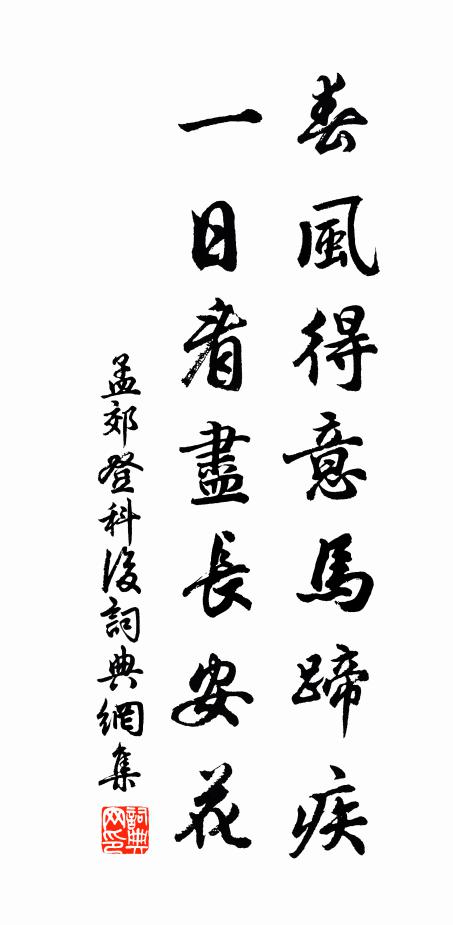 春風得意馬蹄疾
一日看盡長安花
孟郊登科後詞典網集
詞典網印